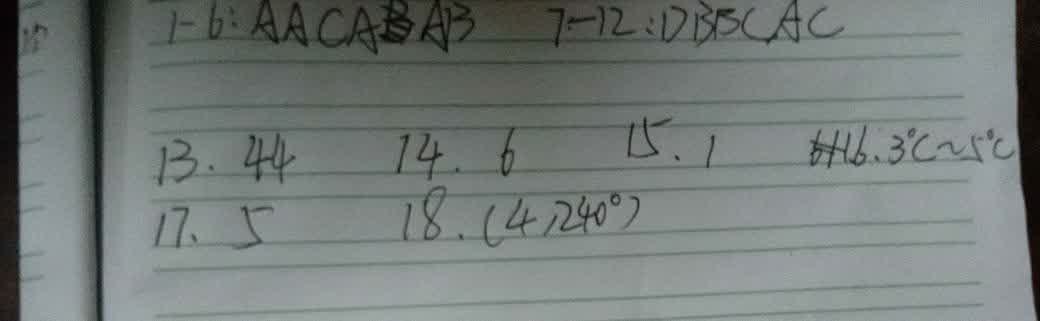 1-6: AACAAB 7-12: DBBCAC
13. 44 14. 6 15. 1 16. 3℃~5℃
17. 5 18. (4,240°)